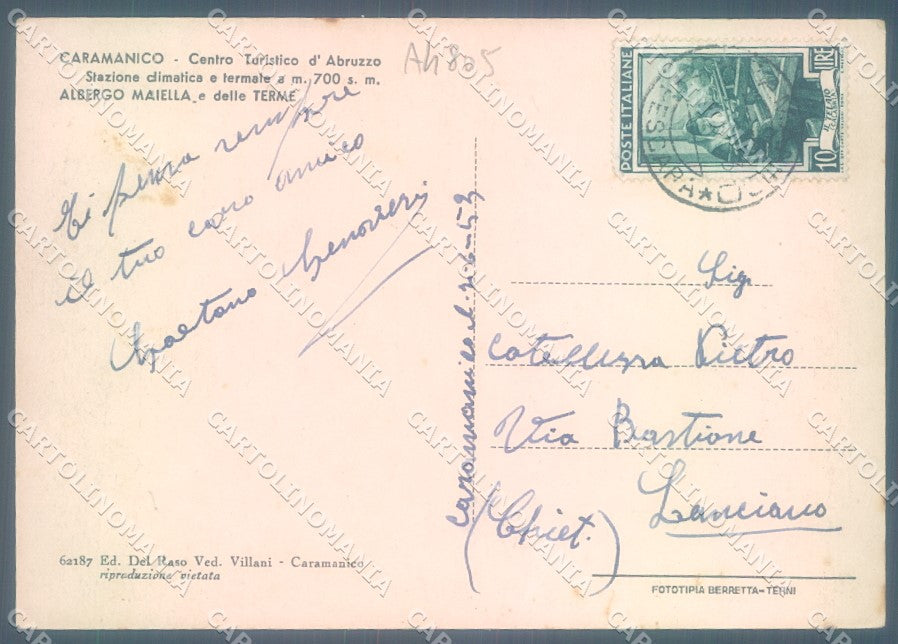 CARAMANICO - Centro Turistico d'Abruzzo
Stazione climatica e termale a m. 700 s. m.
ALBERGO MAIELLA e delle TERME
Ah 805
Ti pensa sempre
il tuo caro amico
Gaetano Genoveri
caramanico li
POSTE ITALIANE
10 LIRE
PESCARA
Sig.
Pietro
Via Bastione
Lanciano
(Chiet.)
62187 Ed. Del Raso Ved. Villani - Caramanico
riproduzione vietata
FOTOTIPIA BERRETTA-TERNI
CARTOLINOMANIA